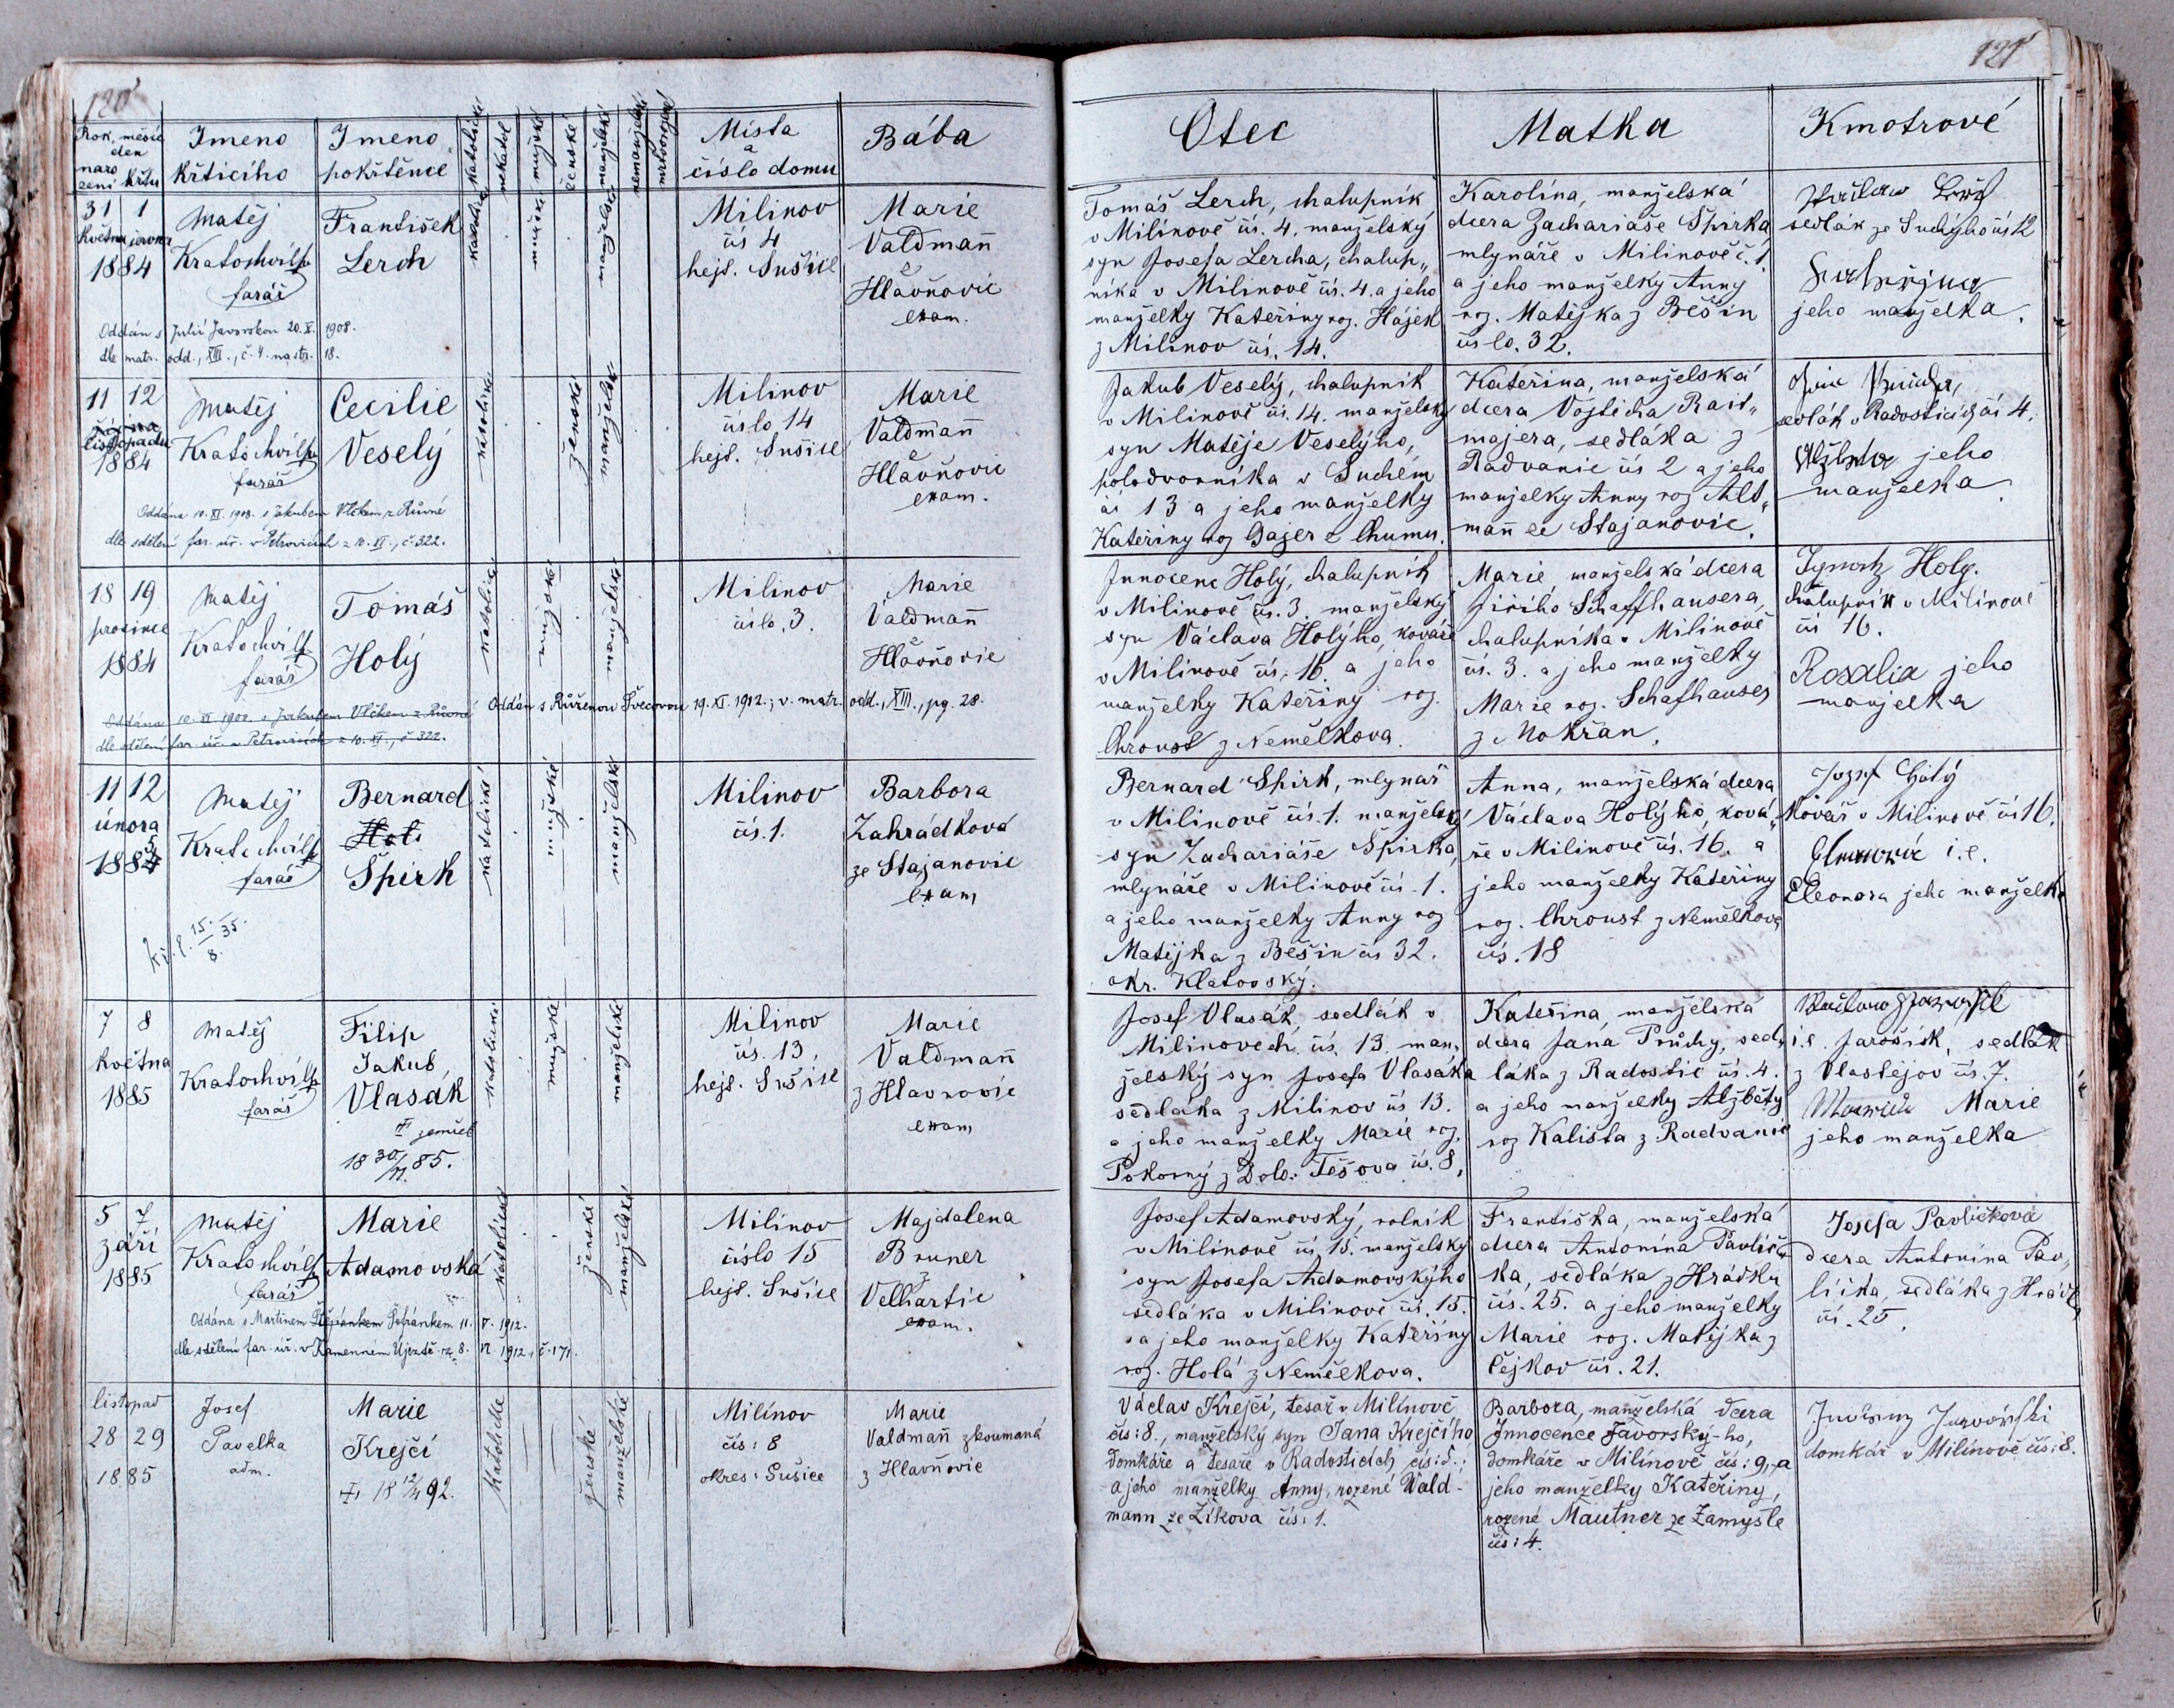 120
Rok, měsíc
den
naro
zení
křtu
Jmeno
křticího
Jmeno
pokřtěnce
katolické
nekatol
mužské
ženské
manželské
nemanželské
mrtvorozené
Místa
a
číslo domu
Bába
31 1
Května června
1884
Matěj
Kratochvíl
farář
František
Lerch
katolické
mužské
manželské
Milinov
čís 4
hejt. Sušice
Marie
Valdman̄
z
Hlavňovic
exam.
Oddán s Julií Javorskou 20. X. 1908.
dle matr. odd., XIII., č. 4. na str. 18.
11 12
listopadu
1884
Matěj
Kratochvíl
farář
Cecilie
Veselý
katolické
ženské
manželské
Milinov
číslo 14
hejt. Sušice
Marie
Valdman̄
z
Hlavňovic
exam.
Oddána 10. XI. 1908. s Jakubem Vlčkem z Růvné
dle sdělení far. úř. v Petrovicích z 10. XI., č. 322.
18 19
prosince
1884
Matěj
Kratochvíl
farář
Tomáš
Holý
katolické
mužské
manželské
Milinov
číslo, 3.
Marie
Valdman̄
z
Hlavňovic
Oddán s Růženou Švecovou 19. XI. 1912.; v. matr. odd., XIII., pg. 28.
Oddána 10. XI. 1908. s Jakubem Vlčkem z Růvné
dle sdělení far. úř. v Petrovicích z 10. XI., č. 322.
11 12
února
1885
Matěj
Kratochvíl
farář
Bernard
Holi
Špirk
katolické
mužské
manželské
Milinov
čís. 1.
Barbora
Zahrádková
ze Stajanovic
exam
15. 35.
8.
7 8
Května
1885
Matěj
Kratochvíl
farář
Filip
Jakub
Vlasák
zemřel
18 30/11 85.
katolické
mužské
manželské
Milinov
čís. 13,
hejt. Sušice
Marie
Valdman̄
z Hlavnovic
exam
5 7
září
1885
Matěj
Kratochvíl
farář
Marie
Adamovská
katolické
ženské
manželské
Milínov
číslo 15
hejt. Sušice
Majdalena
Bruner
z
Velhartic
exam.
Oddána s Martinem Štěpánkem Šefránkem 11. V. 1912.
dle sdělení far. úř. v Kamenném Újezdě ze 8. VI 1912., č. 171.
listopad
28 29
1885
Josef
Pavelka
adm.
Marie
Krejčí
18 12/4 92.
Katolické
ženské
manželské
Milínov
čís: 8
okres: Sušice
Marie
Valdman̄ zkoumaná
z Hlavňovic
121
Otec
Matka
Kmotrové
Tomáš Lerch, chalupník
v Milinově čís. 4. manželský
syn Josefa Lercha, chalup„
níka v Milinově čís. 4. a jeho
manželky Kateřiny roz. Hájek
z Milinov čís. 14.
Karolína, manželská
dcera Zachariaše Špirka
mlynáře v Milinově č. 1.
a jeho manželky Anny
roz. Matějka z Běšin
číslo. 32.
sedlák ze Suchýho čís 12
jeho manželka.
Jakub Veselý, chalupník
v Milinově čís. 14. manželský
syn Matěje Veselýho,
polodvorníka v Suchém
čís 13 a jeho manželky
Kateřiny roz Gajer z Chumu.
Kateřina, manželská
dcera Vojtěcha Rait„
majera, sedláka z
Radvanic čís 2 a jeho
manželky Anny roz Alt„
man̄ ze Stajanovic.
sedlák v Radosticích čís 4.
jeho
manželka.
Innocenc Holý, chalupník
v Milinově čís. 3. manželský
syn Václava Holýho, kováře
v Milinově čís. 16. a jeho
manželky Kateřiny roz.
Chroust z Nemělkova.
Marie, manželská dcera
Jiřího Schaffhausera,
chalupníka v Milinově
čís. 3. a jeho manželky
Marie roz. Schafhauser
z Mokřan.
Ignatz Holy.
chalupník v Milínově
čís 16.
Rosalia jeho
manželka
Bernard Špirk, mlynář
v Milinově čís. 1. manželský
syn Zachariáše Špirka,
mlynáře v Milinově čís. 1.
a jeho manželky Anny roz
Matějka z Běšin čís 32.
okr. Klatovský.
Anna, manželská dcera
Václava Holýho, ková„
ře v Milinově čís. 16. a
jeho manželky Kateřiny
roz. Chroust z Nemělkova
čís. 18
Jozef Holý
Kovář v Milinově čís 16.
i.e.
Eleonora jeho manželka
Josef Vlasák, sedlák v
Milinovech čís. 13. man„
želský syn Josefa Vlasáka
sedláka z Milinov čís 13.
a jeho manželky Marie roz.
Pokorný z Dolo. Těšova čís. 8,
Kateřina, manželská
dcera Jana Průchy, sed„
láka z Radostic čís. 4.
a jeho manželky Alžběty
roz Kališta z Radvanic
i.e. Jarošík, sedlák
z Vlastějov čís. 7.
Marie
jeho manželka
Josef Adamovský, rolník
v Milínově čís, 15. manželský
syn Josefa Adamovskýho
sedláka v Milinově čís. 15.
a jeho manželky Kateřiny
roz. Holá z Nemělkova.
Františka, manželská
dcera Antonína Pavlíč„
ka, sedláka z Hrádku
čís. 25. a jeho manželky
Marie roz. Matějka z
Čejkov čís. 21.
Josefa Pavlíčková
dcera Antonína Pav„
líčka, sedláka z Hrádku
čís. 25.
Václav Krejčí, tesař v Milínově
čís: 8., manželský syn Jana Krejčího,
domkáře a tesaře v Radosticích čís: 5.;
a jeho manželky Anny, rozené Wald-
mann ze Žíkova čís: 1.
Barbora, manželská dcera
Innocence Javorský-ho,
domkáře v Milínově čís: 9, a
jeho manželky Kateřiny,
rozené Mautner ze Zamyšle
čís: 4.
domkář v Milínově čís: 8.